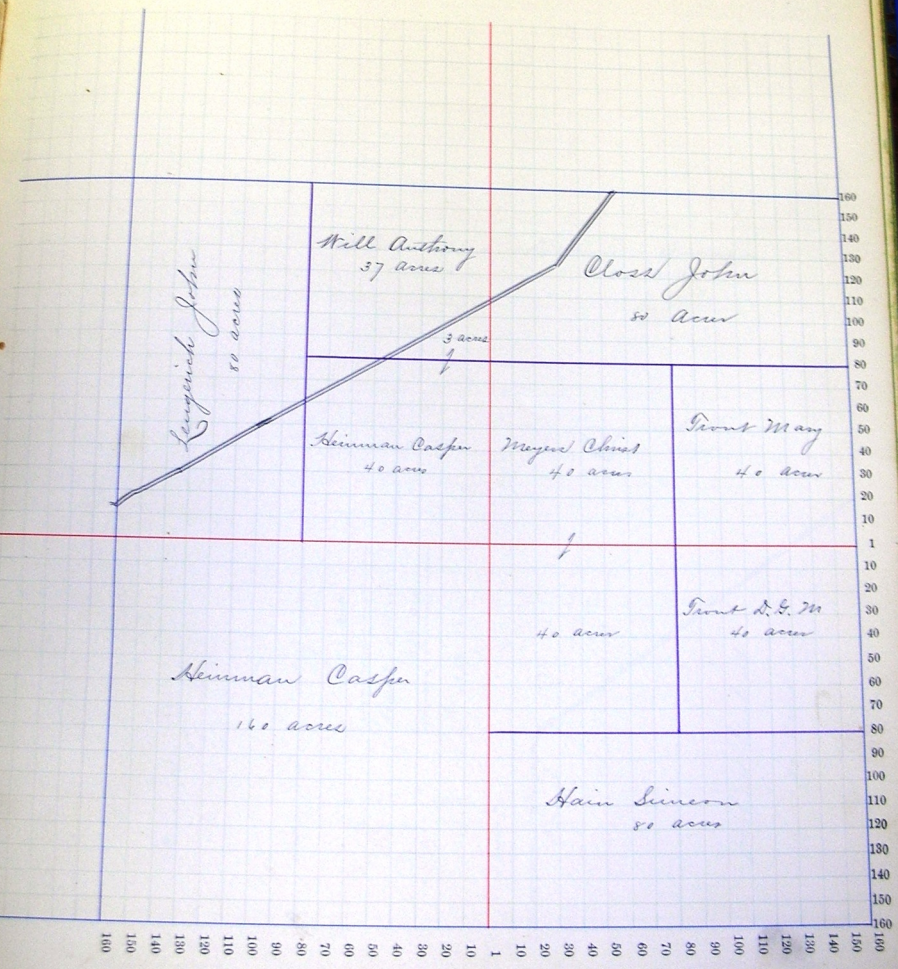 Will Anthony
37 acres
Closs John
80 acres
Lengerich John
80 acres
3 acres
Heinman Casper
40 acres
Meyers Christ
40 acres
Trout Mary
40 acres
40 acres
Trout D. G. M
40 acres
Heinman Casper
160 acres
Hain Simeon
80 acres
160
150
140
130
120
110
100
90
80
70
60
50
40
30
20
10
1
10
20
30
40
50
60
70
80
90
100
110
120
130
140
150
160
160 150 140 130 120 110 100 90 80 70 60 50 40 30 20 10 1 10 20 30 40 50 60 70 80 90 100 110 120 130 140 150 160